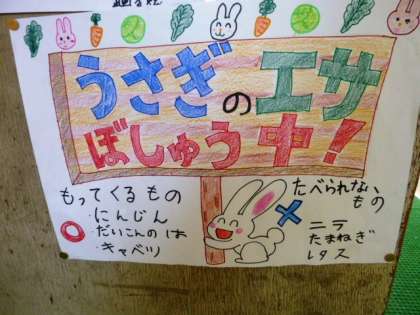 うさぎのエサ
ぼしゅう中！
もってくるもの
・にんじん
・だいこんのは
・キャベツ
たべられない
もの
ニラ
たまねぎ
レタス